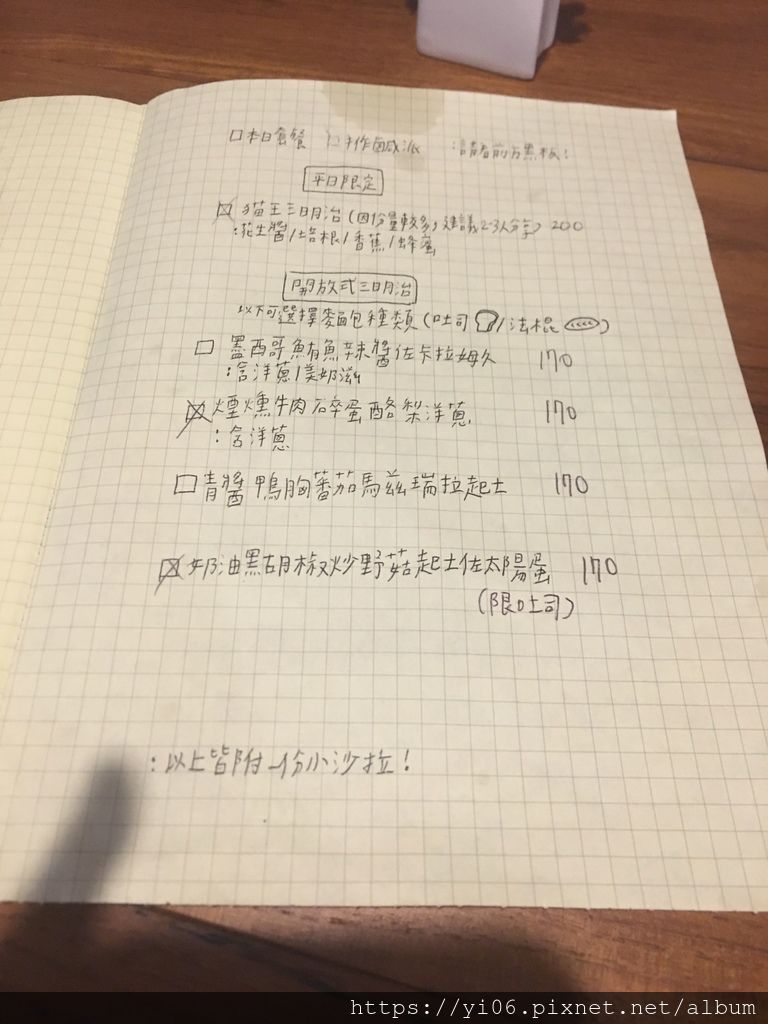 □本日套餐 □手作鹹派 :請看前方黑板!
平日限定
☒ 貓王三明治(因份量較多,建議2-3人分享) 200
:花生醬/培根/香蕉/蜂蜜
開放式三明治
以下可選擇麵包種類(吐司/法棍)
□ 墨西哥鮪魚辣醬佐卡拉姆久 170
:含洋蔥/美奶滋
☒煙燻牛肉碎蛋酪梨洋蔥 170
:含洋蔥
□青醬鴨胸蕃茄馬茲瑞拉起士 170
☒奶油黑胡椒炒野菇起士佐太陽蛋 170
(限吐司)
:以上皆附一份小沙拉!
https://yi06.pixnet.net/album